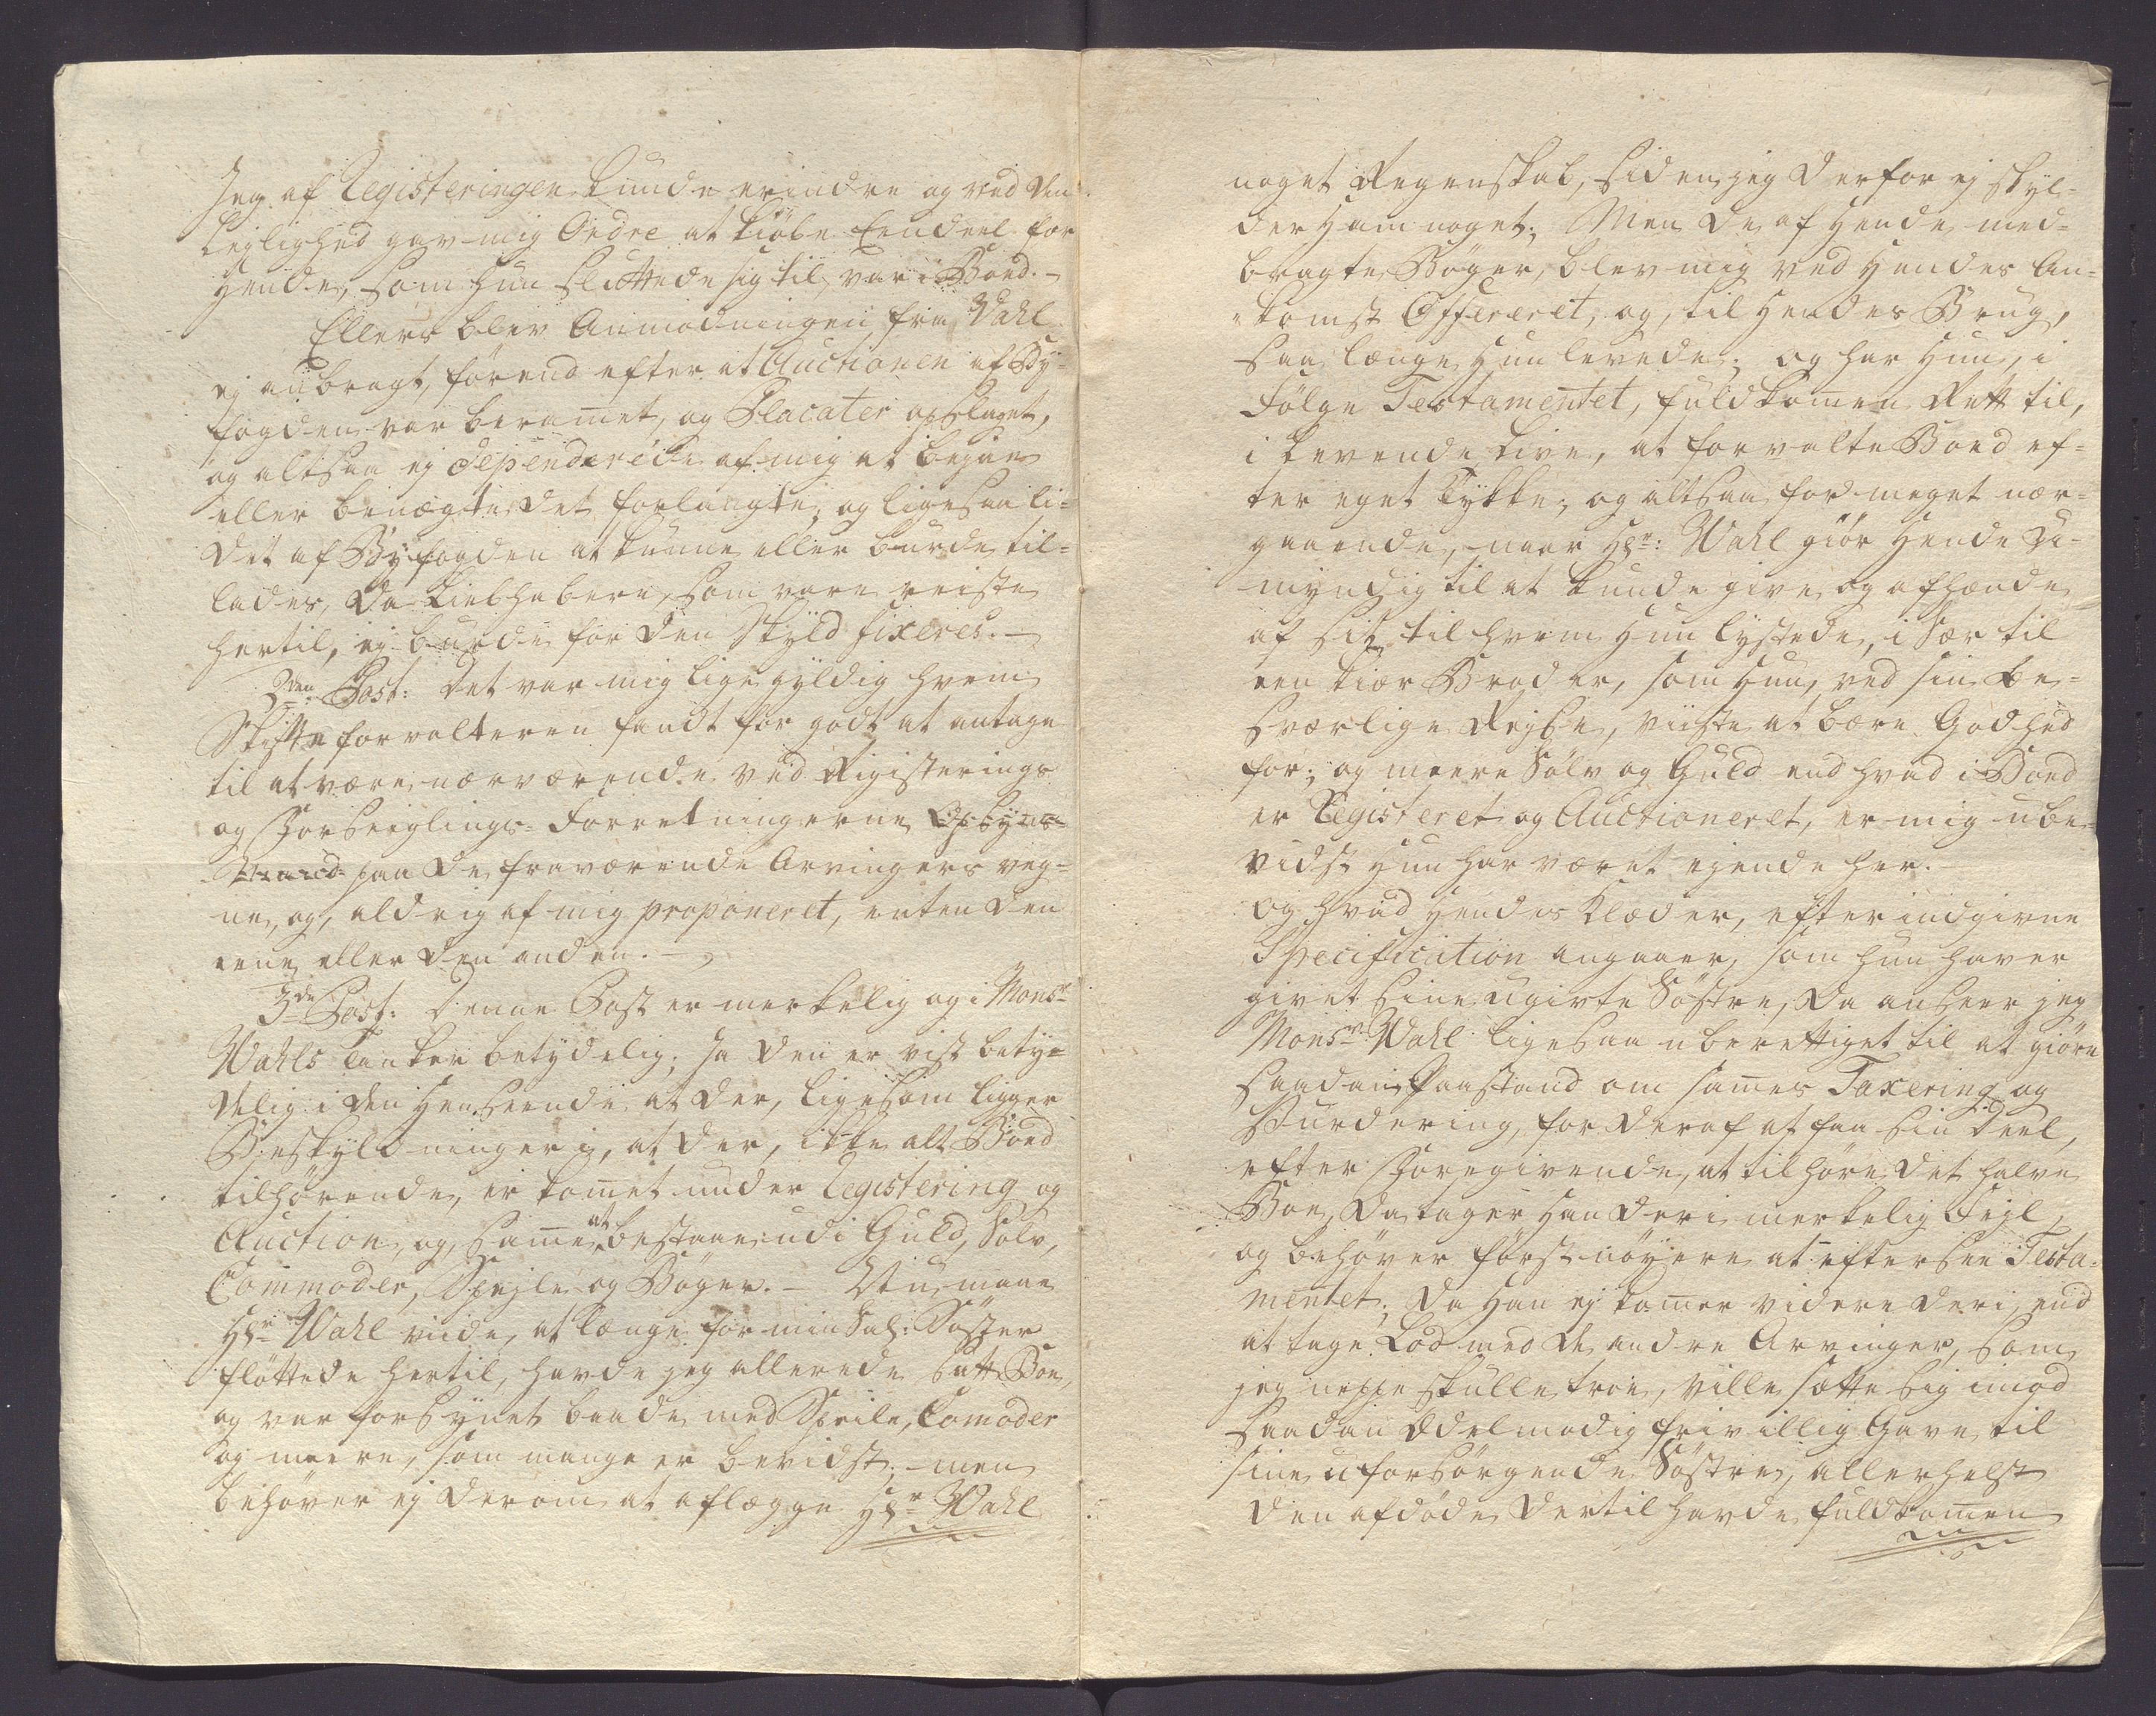 Jeg af Registeringen kunde erindre og ved den
Lejlighed gav mig Ordre at kiöbe Eendeel for
Hende, som hun sluttede sig til, var i Boed.-
Ellers blev Anmodningen fra Wahl
ej anbragt, förend efter at Auctionen af By-
fogden var berammet, og Placater opslaget,
og altsaa ej dependerede af mig at bejae
eller benægte det forlangte, og ligesaa li-
det af Byfogden at kunne eller burde til-
lades, da Liebhabere, som vare reiste
hertil, ej burde for den Skyld fixeres.-
2den Post: Det var mig lige gyldig hvem
Skifteforvalteren fandt for godt at antage
til at være nærværende ved Registerings
og Forseiglings-Forretningerne Opsyns-
Mænd paa de fraværende Arvingers veg-
ne, og, aldrig af mig proponeret, enten den
eene eller den anden.-
3de Post: Denne Post er merkelig og i Monsr
Wahls Tanker betydelig; Ja den er vist bety-
delig i den Henseende at der, ligesom ligger
Beskyldninger i, at der, ikke alt Boed
tilhörende, er komet under Registering og
Auction, og, same at bestaae udi Guld, Sölv,
Commoder, Spejle og Böger.- Nu maae
Hr. Wahl viide, at længe för min Sal: Söster
flöttede hertil, havde jeg allerede satt Boe,
og var forsynet baade med Speile, Comoder
og meere, som mange er bevidst;- men
behöver ej derom at aflægge Hr. Wahl
noget Regenskab, siden jeg derfor ej skyl-
der Ham noget; Men de af Hende med-
bragte Böger, blev mig ved Hendes An-
komst Offereret, og, til Hendes Brug,
saa længe Hun levede; og har Hun, i
Fölge Testamentet, fuldkomen Rett til,
i levende Live, at forvalte Boed ef-
ter eget Tykke; og altsaa for meget nær-
gaaende, naar Hr: Wahl giör Hende U-
myndig til at kunde give og afhænde
af sit til hvem Hun lystede, i sær til
een kiær Broder, som Hun, ved sin be-
sværlige Rejse, viiste at bære Godhed
for; og meere Sölv og Guld end hvad i Boed
er Registeret og Auctioneret, er mig ube-
vidst Hun har været ejende her.-
og hvad Hendes Klæder, efter indgivne
Specification angaaer, som hun haver
givet sine ugivte Söstre, da anseer jeg
Monsr Wahl ligesaa uberettiget til at giöre
saadan Paastand om sames Taxering og
Vurdering, for deraf at faa sin Deel,
efter Foregivende, at tilhöre det halve
Boe, da tager Han deri merkelig Fejl,
og behöver först nöyere at eftersee Testa-
mentet; da Han ej komer videre deri, end
at tage Lod med de andre Arvinger, som
jeg neppe skulle troe, ville sætte sig imod
saadan Ædelmodig frivillig Gave til
sine uforsörgende Söstre, allerhelst
den afdöde dertil havde fuldkomen